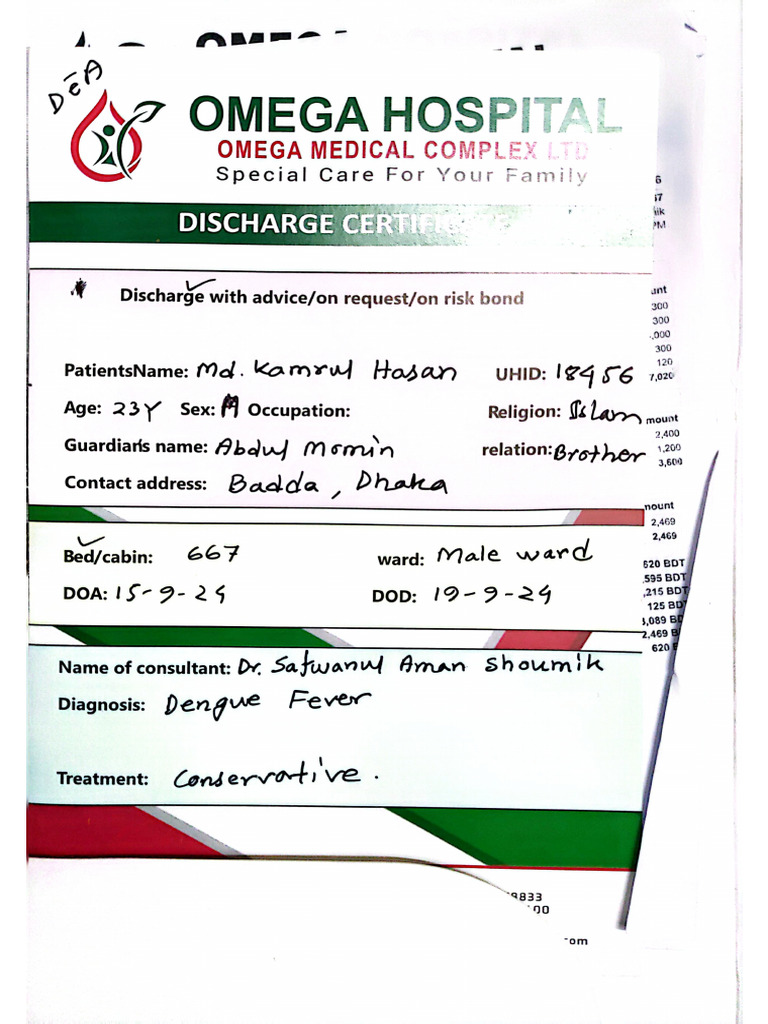 DēA
OMEGA HOSPITAL
OMEGA MEDICAL COMPLEX LTD
Special Care For Your Family
DISCHARGE CERTIFIC
Discharge with advice/on request/on risk bond
PatientsName: Md. Kamrul Hasan UHID: 18456
Age: 23Y Sex: M Occupation: Religion: Islam
Guardian's name: Abdul Momin relation: Brother
Contact address: Badda, Dhaka
Bed/cabin: 667 ward: Male ward
DOA: 15-9-24 DOD: 19-9-24
Name of consultant: Dr. Safwanul Aman Shoumik
Diagnosis: Dengue Fever
Treatment: Conservative.
PM
300
300
,000
300
120
7,020
mount
2,400
1,200
3,600
nount
2,469
2,469
620 BDT
,595 BDT
,215 BDT
125 BD
2,469 B
620
9833
00
om